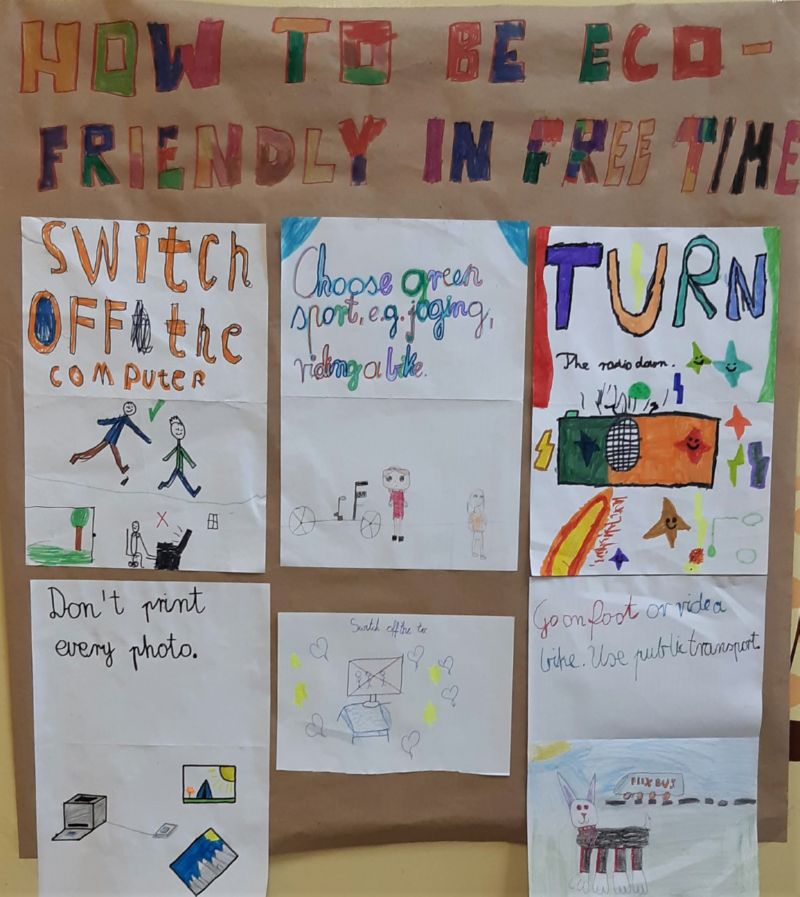 HOW TO BE ECO-
FRIENDLY IN FREE TIME
SWitch
OFF the
COMPUTER
Choose green
sport, e.g. joging,
riding a bike.
TURN
The radio down.
Don't print
every photo.
Switch off the tv
Go on foot or ride a
bike. Use public transport.
FLIXBUS